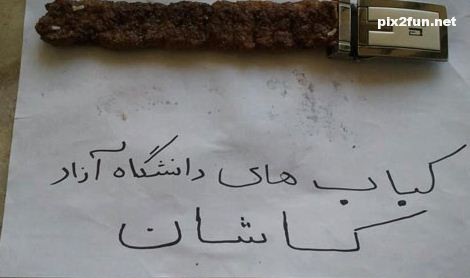 pix2fun.net
کباب های دانشگاه آزاد
کاشان